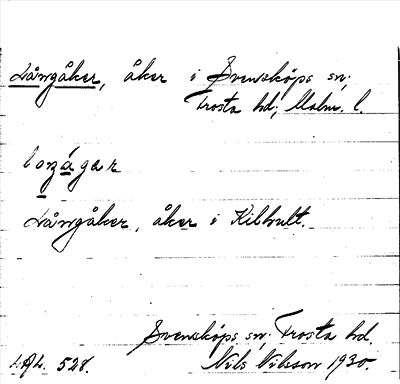 Långåker, åker i Svensköps sn;
Frosta hd; Malm. l.
loŋágar
Långåker, åker i Kilhult.
Svensköps sn; Frosta hd.
L.A.L. 528. Nils Nilsson 1930.